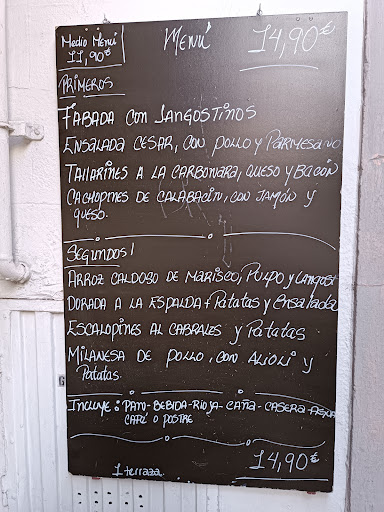 Medio Menú
11,90€
MENÚ
14,90€
PRIMEROS
FABADA CON LANGOSTINOS
ENSALADA CESAR, CON POLLO Y PARMESANO
TALLARINES A LA CARBONARA, QUESO Y BACÓN
CACHOPINES DE CALABACIN, CON JAMÓN Y
QUESO.
SEGUNDOS!
ARROZ CALDOSO DE MARISCO, PULPO Y LANGOST
DORADA A LA ESPALDA + PATATAS Y ENSALADA
ESCALOPINES AL CABRALES Y PATATAS
MILANESA DE POLLO, CON ALIOLI Y
PATATAS.
INCLUYE: PAN-BEBIDA-RIOJA-CAÑA-CASERA-AGUA
CAFÉ O POSTRE
14,90€
1 terraza